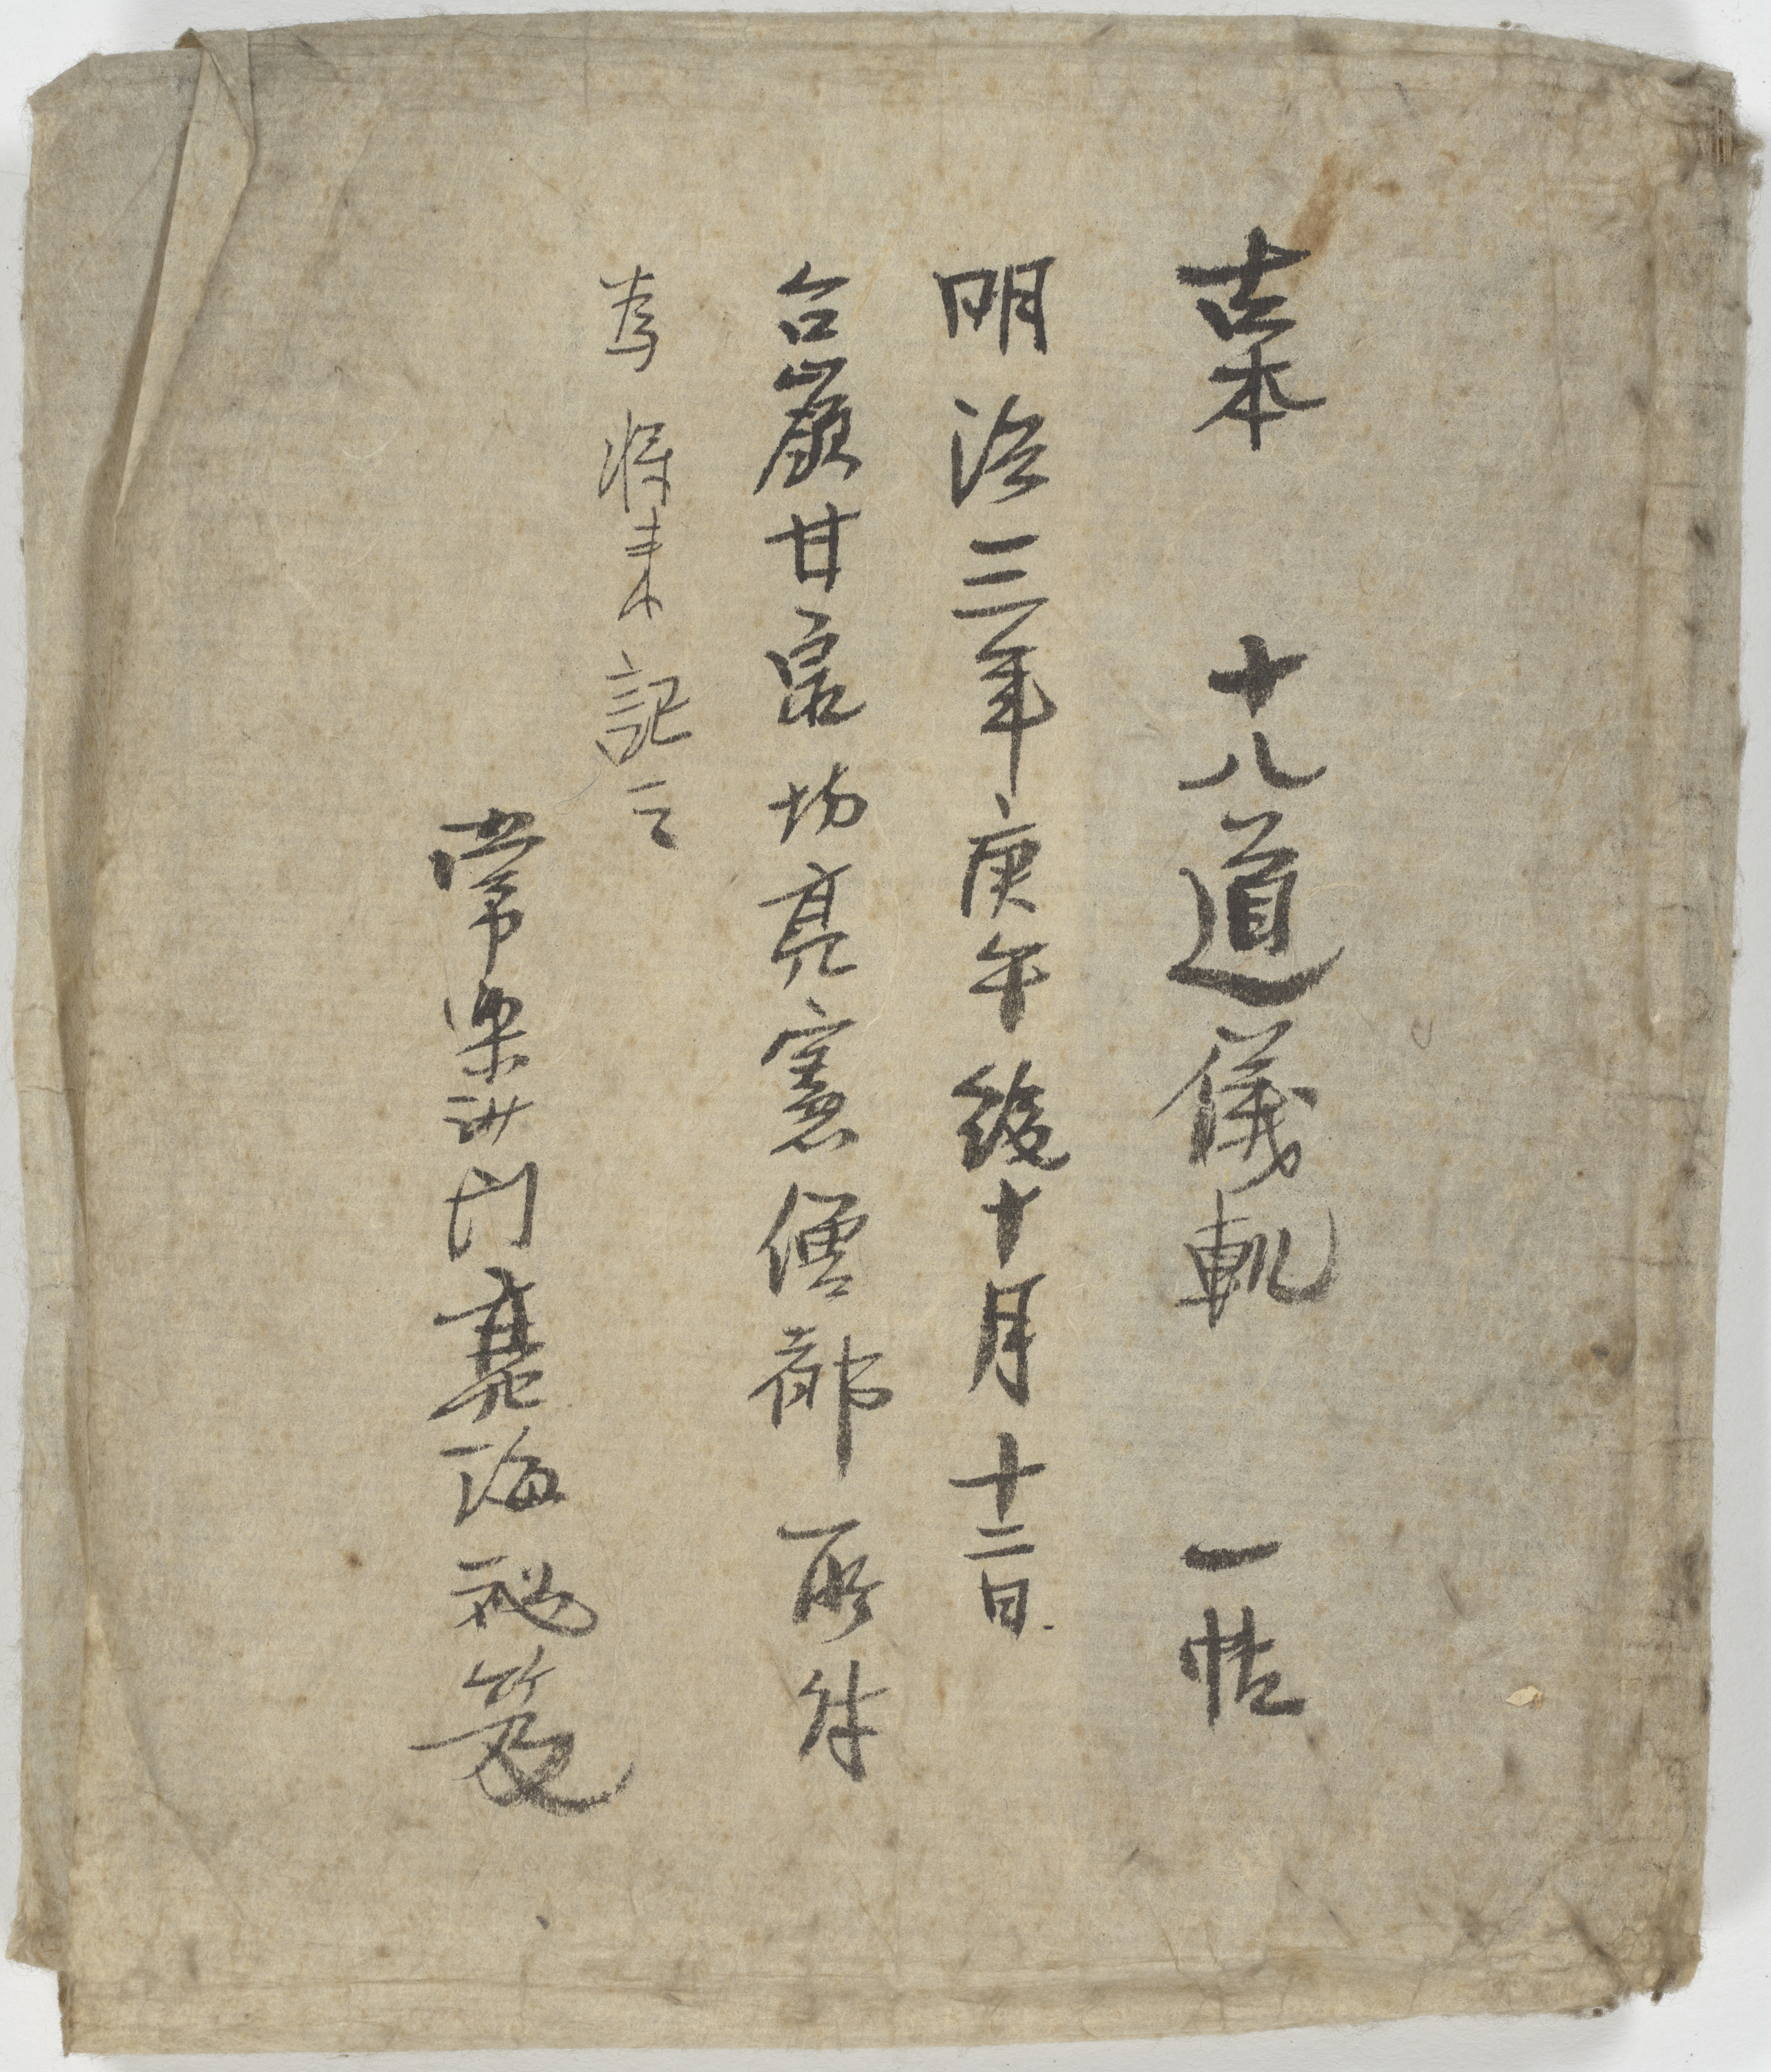 古本 十八道儀軌 一帖
明治三年庚午後十月十二日
台嶺甘露坊亮憲僧都所
為将来記之
常楽沙門亮海秘笈